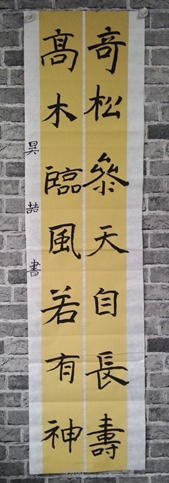 奇松叅天自長壽
高木臨風若有神
昊喆書